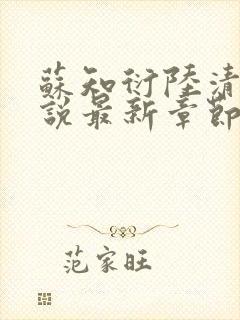 蘇知衍陸清
說最新章節
范家旺